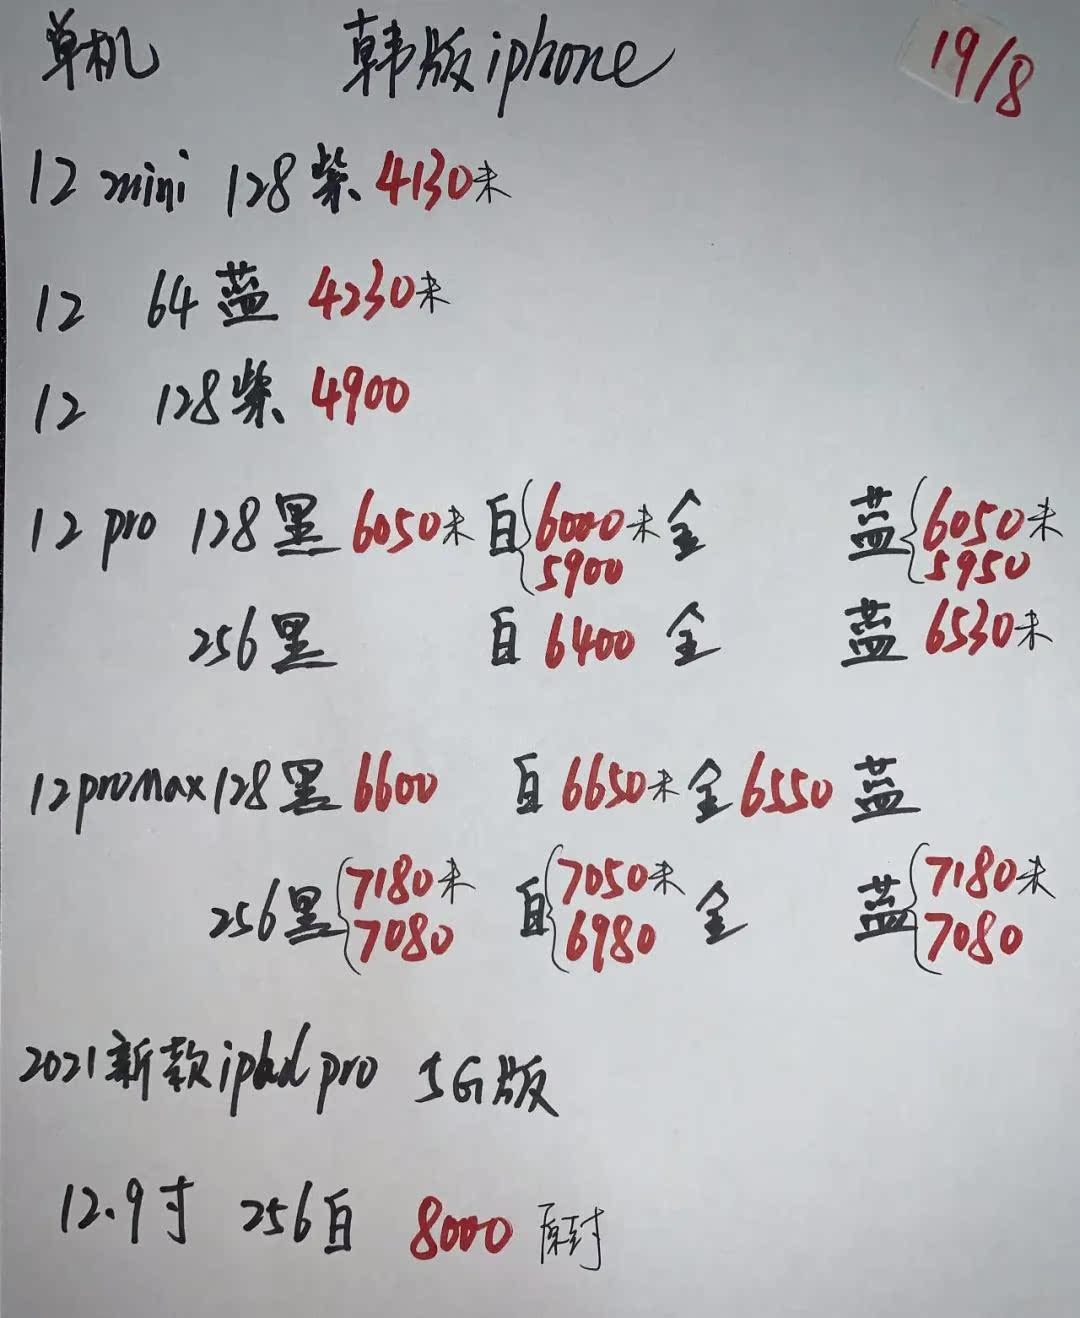 单机 韩版iphone 19/8
12 mini 128紫 4130未
12 64蓝 4230未
12 128紫 4900
12 pro 128黑 6050未 白 6000未 金 蓝 6050未
5900 5950
256黑 白 6400 金 蓝 6530未
12promax 128黑 6600 白 6650未 金 6550 蓝
256黑 7180未 白 7050未 金 蓝 7180未
7080 6980 7080
2021新款ipad pro 5G版
12.9寸 256白 8000 原封